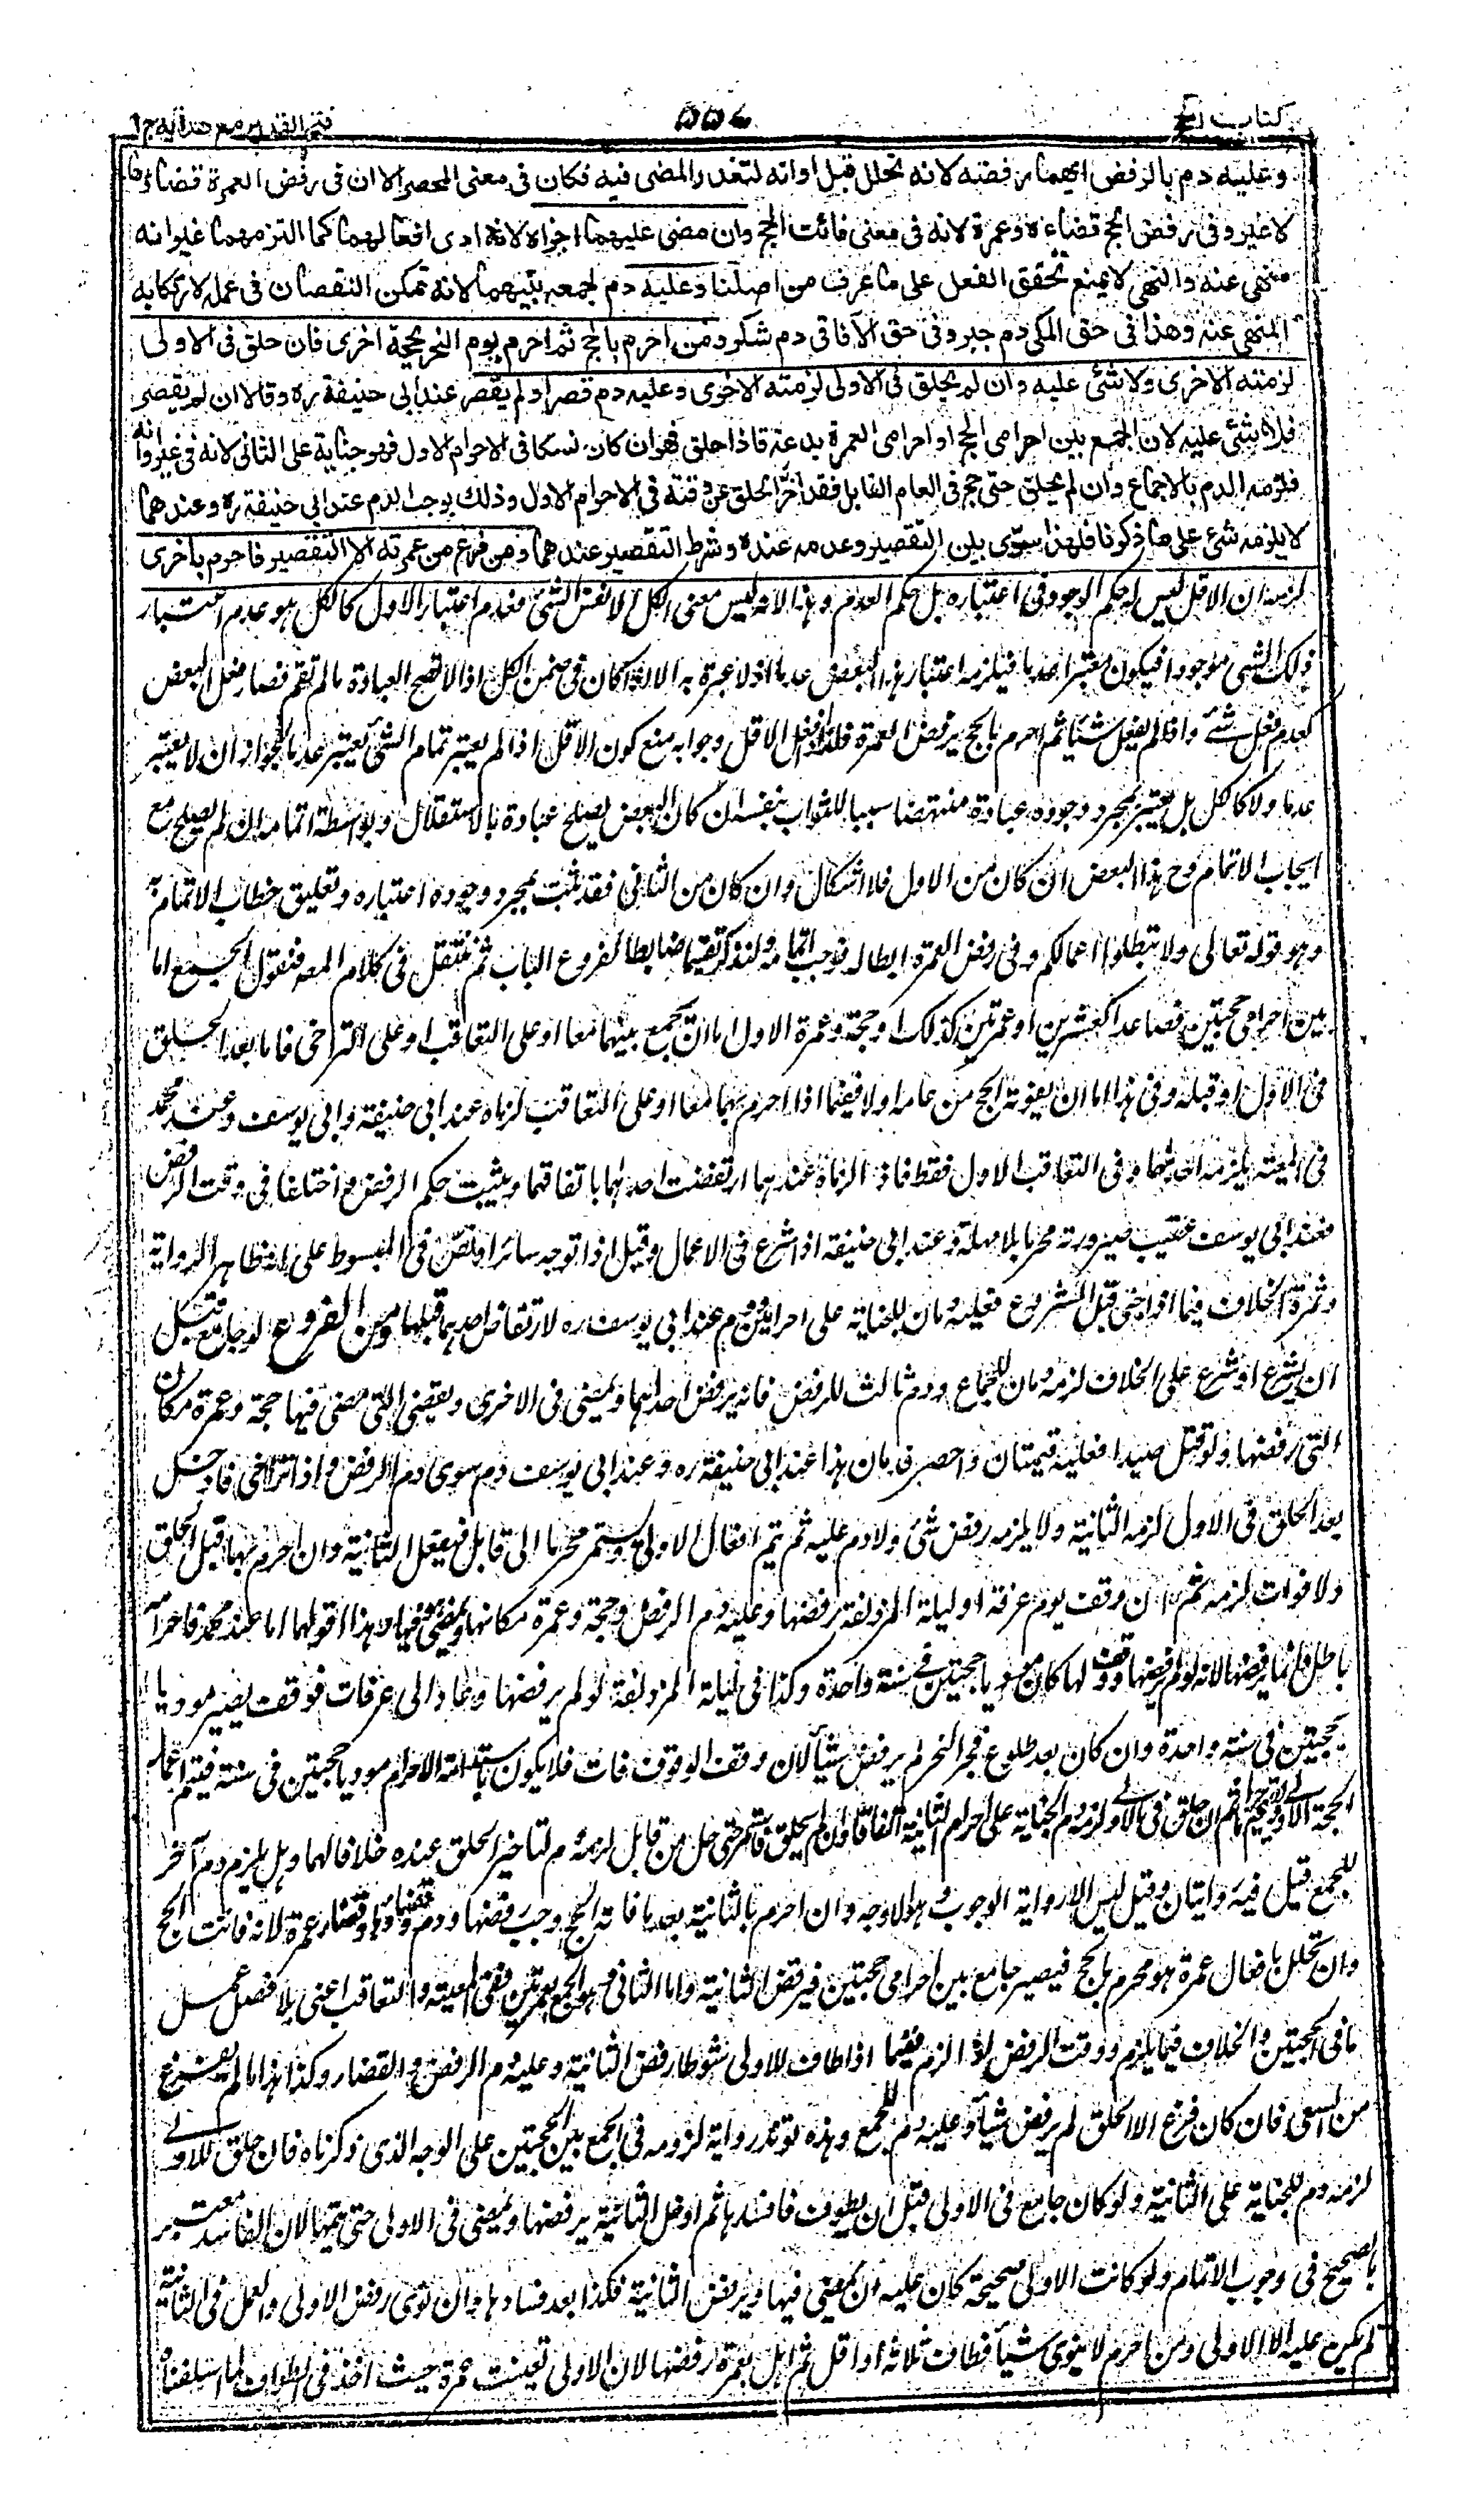 كتاب الحج
٥٥٤
فتح القدير مع هدايه ج ١
وعليه دم بالرفض ايهما رفضه لانه تحلل قبل اوانه لتعذر المضى فيه فكان فى معنى المحصر الا ان فى رفض العمرة قضاءها
لا غير وفى رفض الحج قضاءه وعمرة لانه فى معنى فائت الحج وان مضى عليهما اجزاه لانه ادى افعالهما كما التزمهما غير انه
منهى عنه والنهى لا يمنع تحقق الفعل على ما عرف من اصلنا وعليه دم لجمعه بينهما لانه تمكن النقصان فى عمله لارتكابه
المنهى عنه وهذا فى حق المكى دم جبر وفى حق الآفاقى دم شكر ومن احرم بالحج ثم احرم يوم النحر بحجة اخرى فان حلق فى الاولى
لزمته الاخرى ولا شئ عليه وان لم يحلق فى الاولى لزمته الاخرى وعليه دم قصر او لم يقصر عند ابى حنيفة ره وقالا ان لم يقصر
فلا شئ عليه لان الجمع بين احرامى الحج او احرامى العمرة بدعة فاذا حلق فهو ان كان نسكا فى الاحرام الاول فهو جناية على الثانى لانه فى غير اوانه
فلزمه الدم بالاجماع وان لم يحلق حتى حج فى العام القابل فقد اخر الحلق عن وقته فى الاحرام الاول وذلك يوجب الدم عند ابى حنيفة ره وعندهما
لا يلزمه شئ على ما ذكرنا فلهذا سوى بين التقصير وعدمه عنده وشرط التقصير عندهما ومن فرغ من عمرته الا التقصير فاحرم باخرى
لزمه ان الاقل ليس له حكم الوجود فى اعتباره بل حكم العدم وهذا لانه ليس معنى الكل الا نفس الشئ فعدم اعتبار الاول كالكل هو عدم اعتبار
ذلك الشئ موجودا فيكون معتبرا عدما فيلزمه اعتبار هذا البعض عدما اذ لا عبرة به الا اذا كان فى ضمن الكل اذ لا تصح العبادة ما لم تتم فصار فعل البعض
كعدم فعل شئ واذا لم يفعل شيئا ثم احرم بالحج يرفض العمرة فكذا اذا فعل الاقل وجوابه منع كون الاقل اذا لم يعتبر تمام الشئ يعتبر عدما لجواز ان لا يعتبر
عدما ولا كالكل بل يعتبر بمجرد وجوده عبادة منتهضا سببا للثواب بنفسه ان كان البعض يصلح عبادة بالاستقلال وبواسطة اتمامه ان لم يصلح مع
ايجاب الاتمام وح هذا البعض ان كان من الاول فلا اشكال وان كان من الثانى فقد ثبت بمجرد وجوده اعتباره وتعليق خطاب الاتمام به
وهو قوله تعالى ولا تبطلوا اعمالكم وفى رفض العمرة ابطاله فوجب اتمامه ولنذكر تقسيما ضابطا لفروع الباب ثم ننتقل فى كلام المصه فنقول الجمع اما
بين احرامى حجتين فصاعدا كعشرين او عمرتين كذلك او حجة وعمرة الاول اما ان يجمع بينهما معا او على التعاقب او على التراخى فاما بعد الحلق
فى الاول او قبله وفى هذا اما ان يفوته الحج من عامه او لا ففيما اذا احرم بهما معا او على التعاقب لزماه عند ابى حنيفة وابى يوسف وعند محمد
فى المعية يلزمه احدهما وفى التعاقب الاول فقط فاذا الزماه عندهما ارتفضت احداهما باتفاقهما ويثبت حكم الرفض واختلفا فى وقت الرفض
فعند ابى يوسف عقيب صيرورته محرما بلا مهلة وعند ابى حنيفة اذا شرع فى الاعمال وقيل اذا توجه سائرا ونص فى المبسوط على انه ظاهر الرواية
وثمرة الخلاف فيما اذا جنى قبل الشروع فعليه دمان للجناية على احرامين ودم عند ابى يوسف ره لارتفاض احدهما قبلها ومن الفروع لو جامع قبل
ان يشرع او شرع على الخلاف لزمه دمان للجماع ودم ثالث للرفض فانه يرفض احداهما ويمضى فى الاخرى ويقضى التى مضى فيها وحجة وعمرة مكان
التى رفضها ولو قتل صيدا فعليه قيمتان واحصر فدمان هذا عند ابى حنيفة ره وعند ابى يوسف دم سوى دم الرفض واذا تراخى فادخل
بعد الحلق فى الاول لزمه الثانية ولا يلزمه رفض شئ ولا دم عليه ثم يتم افعال الاولى ويستمر محرما الى قابل فيفعل الثانية وان احرم بها قبل الحلق
ولا فوات لزمه ثم ان وقف يوم عرفة او ليلة المزدلفة رفضها وعليه دم الرفض وحجة وعمرة مكانها ويمضى فيها وهذا قولهما اما عند محمد فاحرامه
باطل وانما يرفضها لانه لو لم يرفضها ووقف لها كان مؤديا حجتين فى سنة واحدة وكذا فى ليلة المزدلفة لو لم يرفضها وعاد الى عرفات فوقف يصير موديا
حجتين فى سنة واحدة وان كان بعد طلوع فجر النحر لم يرفض شيأ لان وقت الوقوف فات فلا يكون باستدامة الاحرام موديا حجتين فى سنة فيتم اعمال
الحجة الاولى ويقيم حراما ثم ان حلق فى الاولى لزمه دم الجناية على احرام الثانية اتفاقا وان لم يحلق فاستمر حتى حل من قابل لزمه دم لتاخير الحلق عنده خلافا لهما وهل يلزم دم آخر
للجمع قيل فيه روايتان وقيل ليس الا رواية الوجوب وهو الاوجه وان احرم بالثانية بعد ما فاته الحج وجب رفضها ودم وقضاؤها وقضاء عمرة لانه فائت الحج
وان تحلل بافعال عمرة هو محرم بالحج فيصير جامع بين احرامى حجتين فيرفض الثانية واما الثانى وهو الجمع بعمرتين ففى المعية والتعاقب اعنى بلا فصل عمل
ما فى الحجتين والخلاف فيما يلزم ووقت الرفض اذا لزم ففيما اذا طاف للاولى شوطا رفض الثانية وعليه دم الرفض والقضاء وكذا هذا ما لم يفرغ
من السعى فان كان فرغ الا الحلق لم يرفض شيأ وعليه دم للجمع وهذه تؤيد رواية لزومه فى الجمع بين الحجتين على الوجه الذى ذكرناه فان حلق للاولى
لزمه دم للجناية على الثانية ولو كان جامع فى الاولى قبل ان يطوف فافسدها ثم ادخل الثانية يرفضها ويمضى فى الاولى حتى يتمها لان الفاسد معتبر
بالصحيح فى وجوب الاتمام ولو كانت الاولى صحيحة كان عليه ان يمضى فيها ويرفض الثانية فكذا بعد فسادها وان نوى رفض الاولى والعمل فى الثانية
لم يكن عليه الا الاولى ومن احرم لا ينوى شيأ فطاف ثلاثة او اقل ثم اهل بعمرة رفضها لان الاولى تعينت عمرة حيث اخذ فى الطواف لما اسلفناه